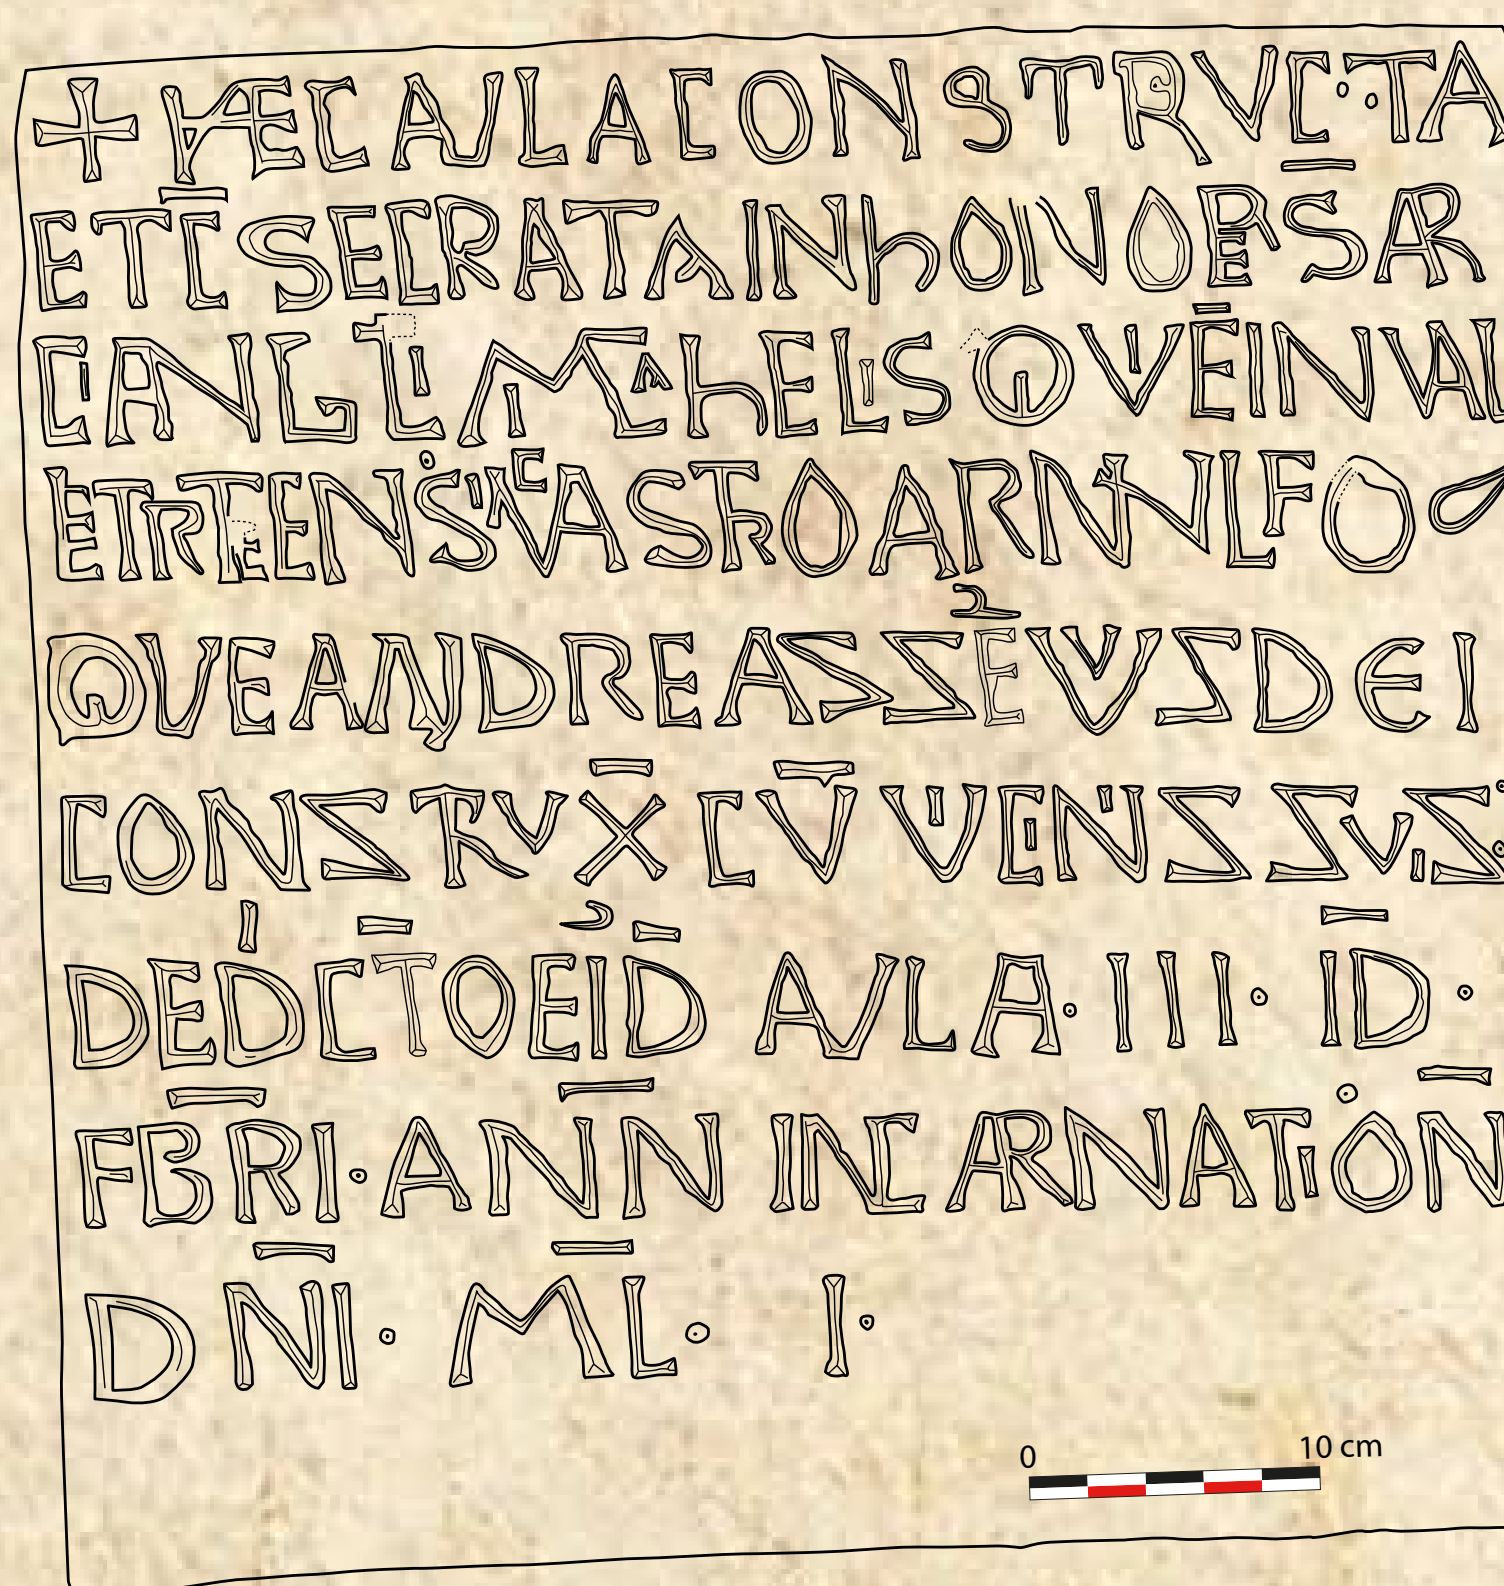 + HÆC AULA CONSTRVC:TA
ET C̅SECRATA IN hONORE S̅ AR
CANGLI MICAhELIS QVE̅ INVAL
ET RETENS
QUE ANDREAS SEVUS DEI
CONSTRVX̅ CV̅ VICINIS SVIS:
DEDCTO EID̅ AULA · III · ID̅ ·
FBR̅I · ANN̅ INCARNATION
DN̅I · ML̅ · I ·
0 10 cm